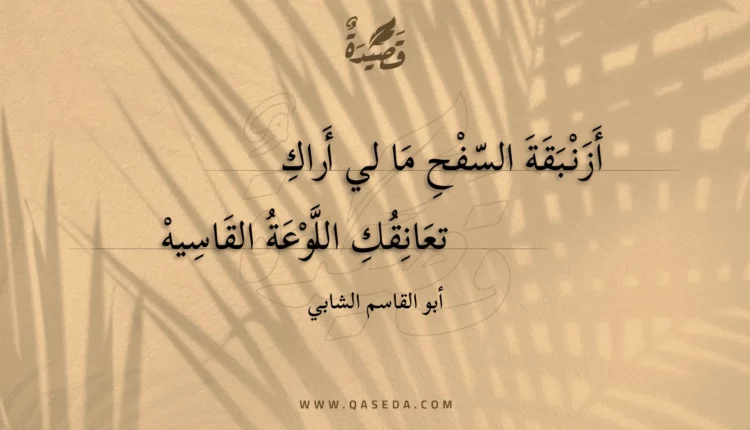 قَصِيْدَةٌ
أَزَنْبَقَةَ السّفْحِ مَا لي أَراكِ
تعَانِقُكِ اللَّوْعَةُ القَاسِيهْ
أبو القاسم الشابي
WWW.QASEDA.COM